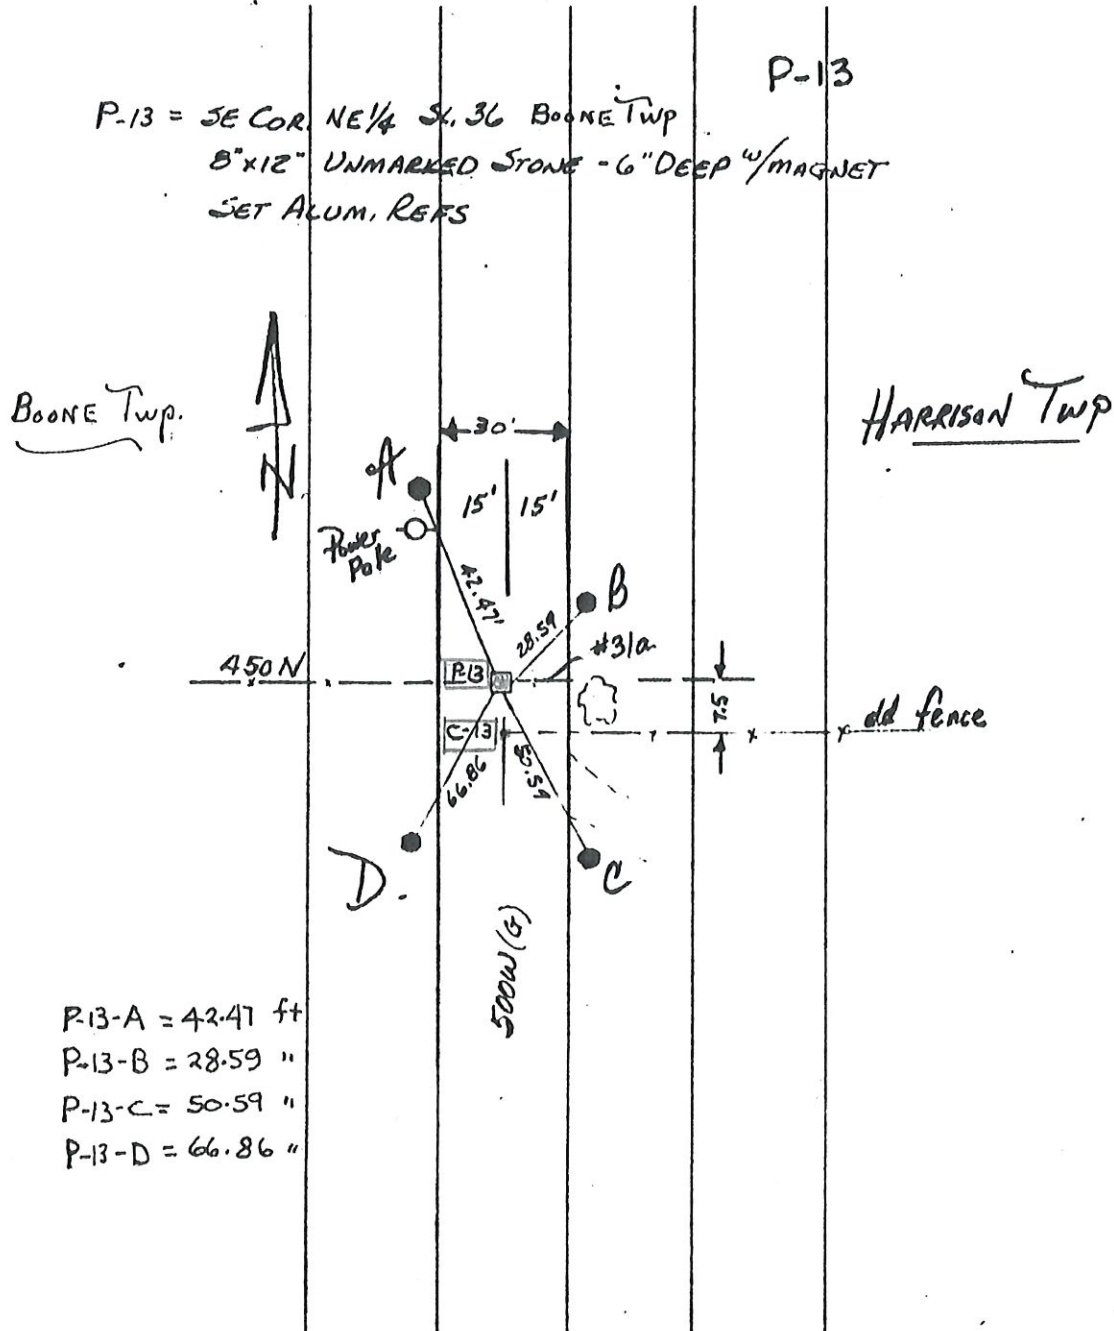 P-13
P-13 = SE COR. NE 1/4 Sc. 36 BOONE TWP
8"x12" UNMARKED STONE - 6" DEEP w/MAGNET
SET ALUM. REFS
BOONE TWP.
HARRISON TWP
N
30'
15' 15'
A
Power
Pole
42.47'
B
28.59
#31a
450N
P-13
7.5
C-13
dd fence
66.86
50.59
D.
C
500W (G)
P-13-A = 42.47 ft
P-13-B = 28.59 "
P-13-C = 50.59 "
P-13-D = 66.86 "